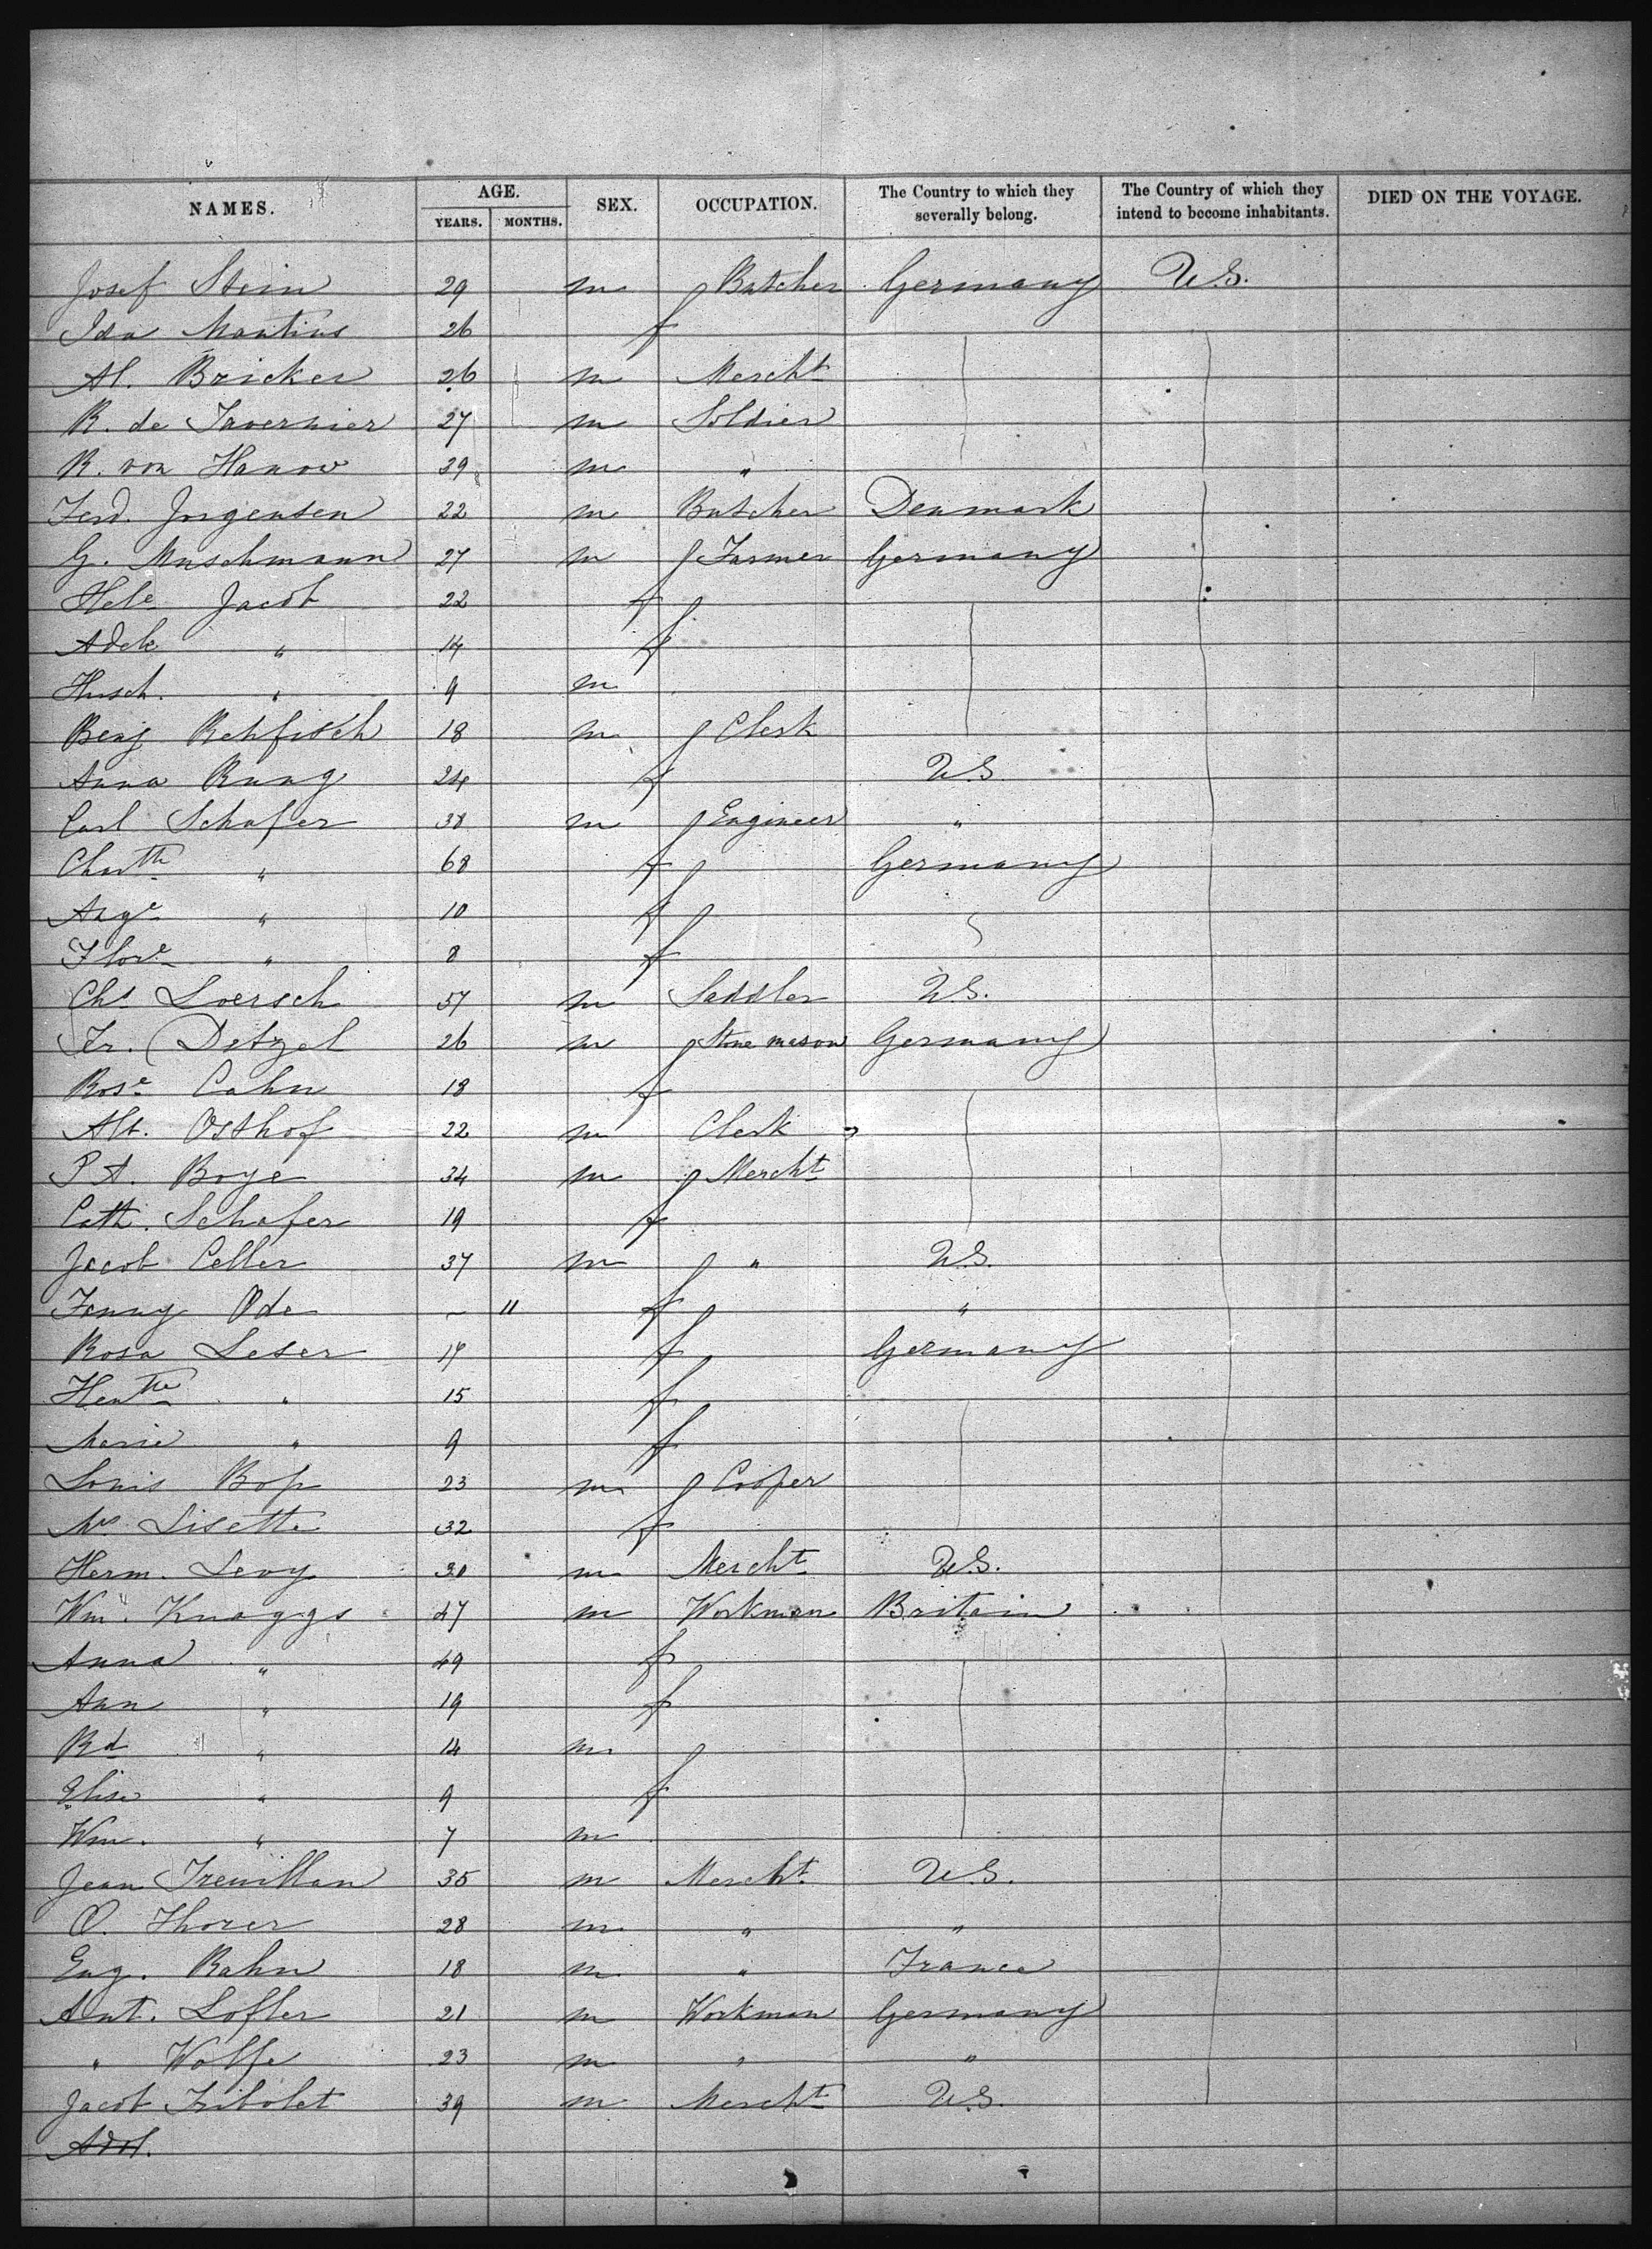 NAMES. AGE. SEX. OCCUPATION. The Country to which they severally belong. The Country of which they intend to become inhabitants. DIED ON THE VOYAGE.
YEARS. MONTHS.
Josef Stein 29 m Butcher Germany U.S.
Ida Martins 26 f
Al. Bricker 26 m Mercht
R. de Tavernier 27 m Soldier
R. von Hanow 39 m "
Ferd. Jorgensen 22 m Butcher Denmark
G. Muschmann 27 m Farmer Germany
Hele Jacob 22 f
Adele " 14 f
Hirsch. " 9 m
Benj Rehfisch 18 m Clerk
Anna Rung 24 f U.S.
Carl Schafer 38 m Engineer "
Chartte " 68 f Germany
Auge " 10 f
Flore " 8 f
Chs Loersch 57 m Saddler U.S.
Fr. Detzel 26 m Stone mason Germany
Rose Cahn 18 f
Alb. Osthof 22 m Clerk
P A. Boye 34 m Mercht
Cath. Schafer 19 f
Jacob Celler 37 m " U.S.
Fanny Ode - 11 f "
Rosa Leser 17 f Germany
Hentte " 15 f
Marie " 9 f
Louis Bop 23 m Cooper
Mrs Lisette 32 f
Herm. Levy 30 m Mercht U.S.
Wm. Knaggs 47 m Workman Britain
Anna " 49 f
Ann " 19 f
Rd " 14 m
Elise " 9 f
Wm. " 7 m
Jean Trenillan 35 m Mercht U.S.
O. Thorer 28 m " "
Eug. Kahn 18 m " France
Ant. Lofler 21 m Workman Germany
" Wolfe 23 m " "
Jacob Tribolet 39 m Mercht U.S.
Adol.